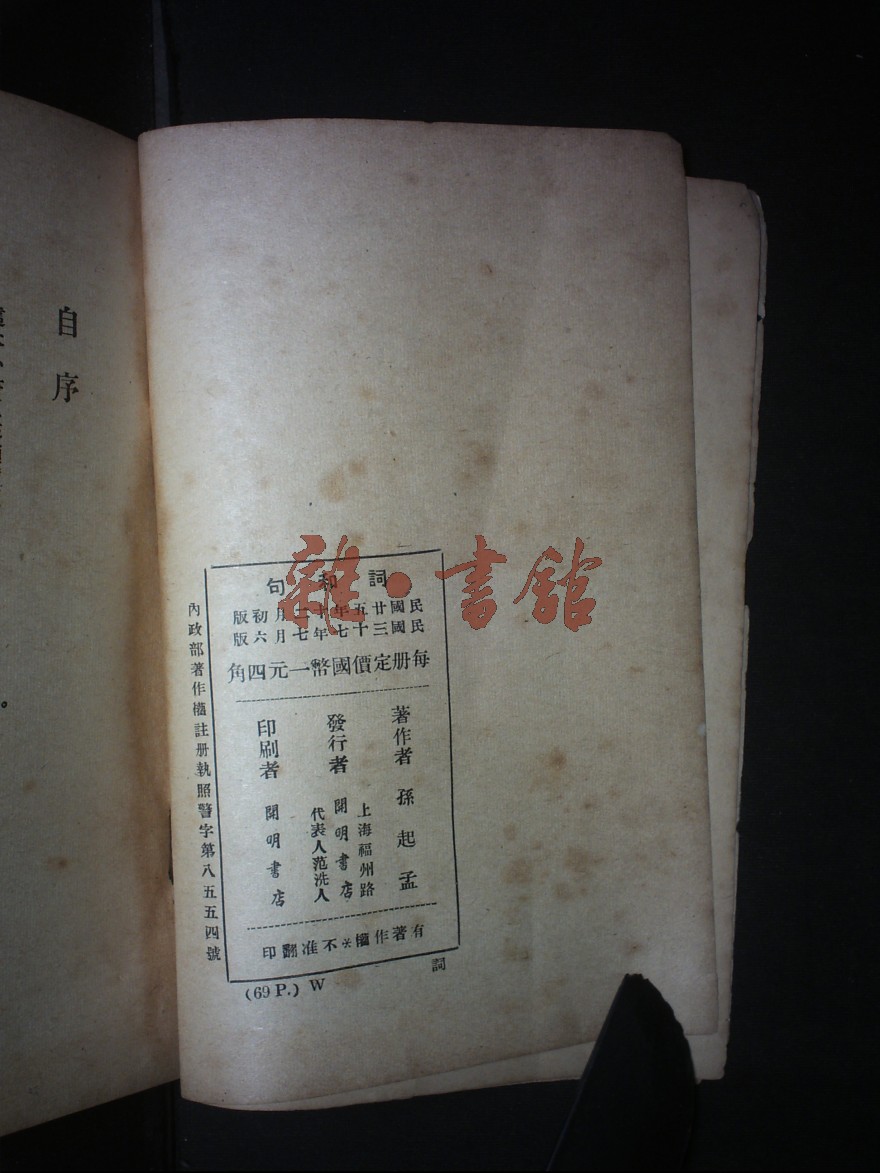 詞和句
民國廿五年十二月初版
民國三十七年七月六版
每册定價國幣一元四角
著作者 孫起孟
發行者
上海福州路
開明書店
代表人范洗人
印刷者 開明書店
有著作權※不准翻印
內政部著作權註册執照警字第八五五四號
詞
(69 P.) W
自序
雜·書館